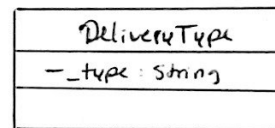 DeliveryType
-_type : String